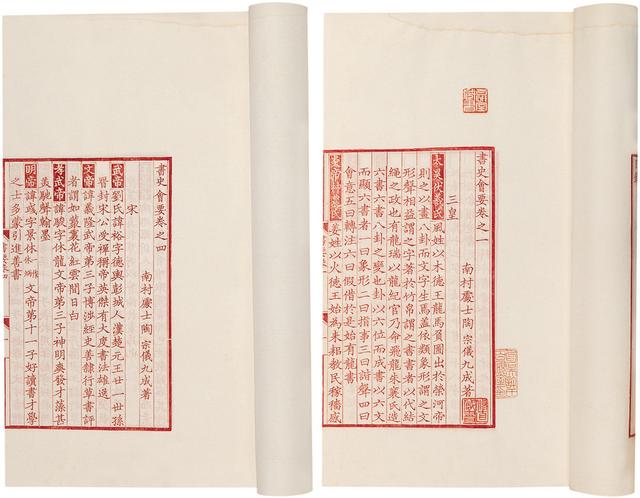 書史會要卷之一
南村處士陶宗儀九成著
三皇
太昊伏羲氏風姓以木德王龍馬負圖出於滎河帝
則之以畫八卦而文字生焉蓋依類象形謂之文
形聲相益謂之字著於竹帛謂之書書者以代結
繩之政也有龍瑞以龍紀官乃命飛龍朱襄氏造
六書六書八卦之變也卦以六位而成書以六文
而顯六書者一曰象形二曰指事三曰諧聲四曰
會意五曰轉注六曰假借於是始有龍書
炎帝神農氏姜姓以火德王始為耒耜教民稼穡感
書史會要卷之四
南村處士陶宗儀九成著
宋
武帝劉氏諱裕字德輿彭城人漢楚元王廿一世孫
晉封宋公受禪稱帝英傑有大度書法雄逸
文帝諱義隆武帝第三子博涉經史善隸行草書評
者謂如葉裏花紅雲間日白
孝武帝諱駿字休龍文帝第三子神明爽發才藻甚
美馳聲翰墨
明帝諱彧字景休 文帝第十一子好讀書才學
之士多蒙引進善書